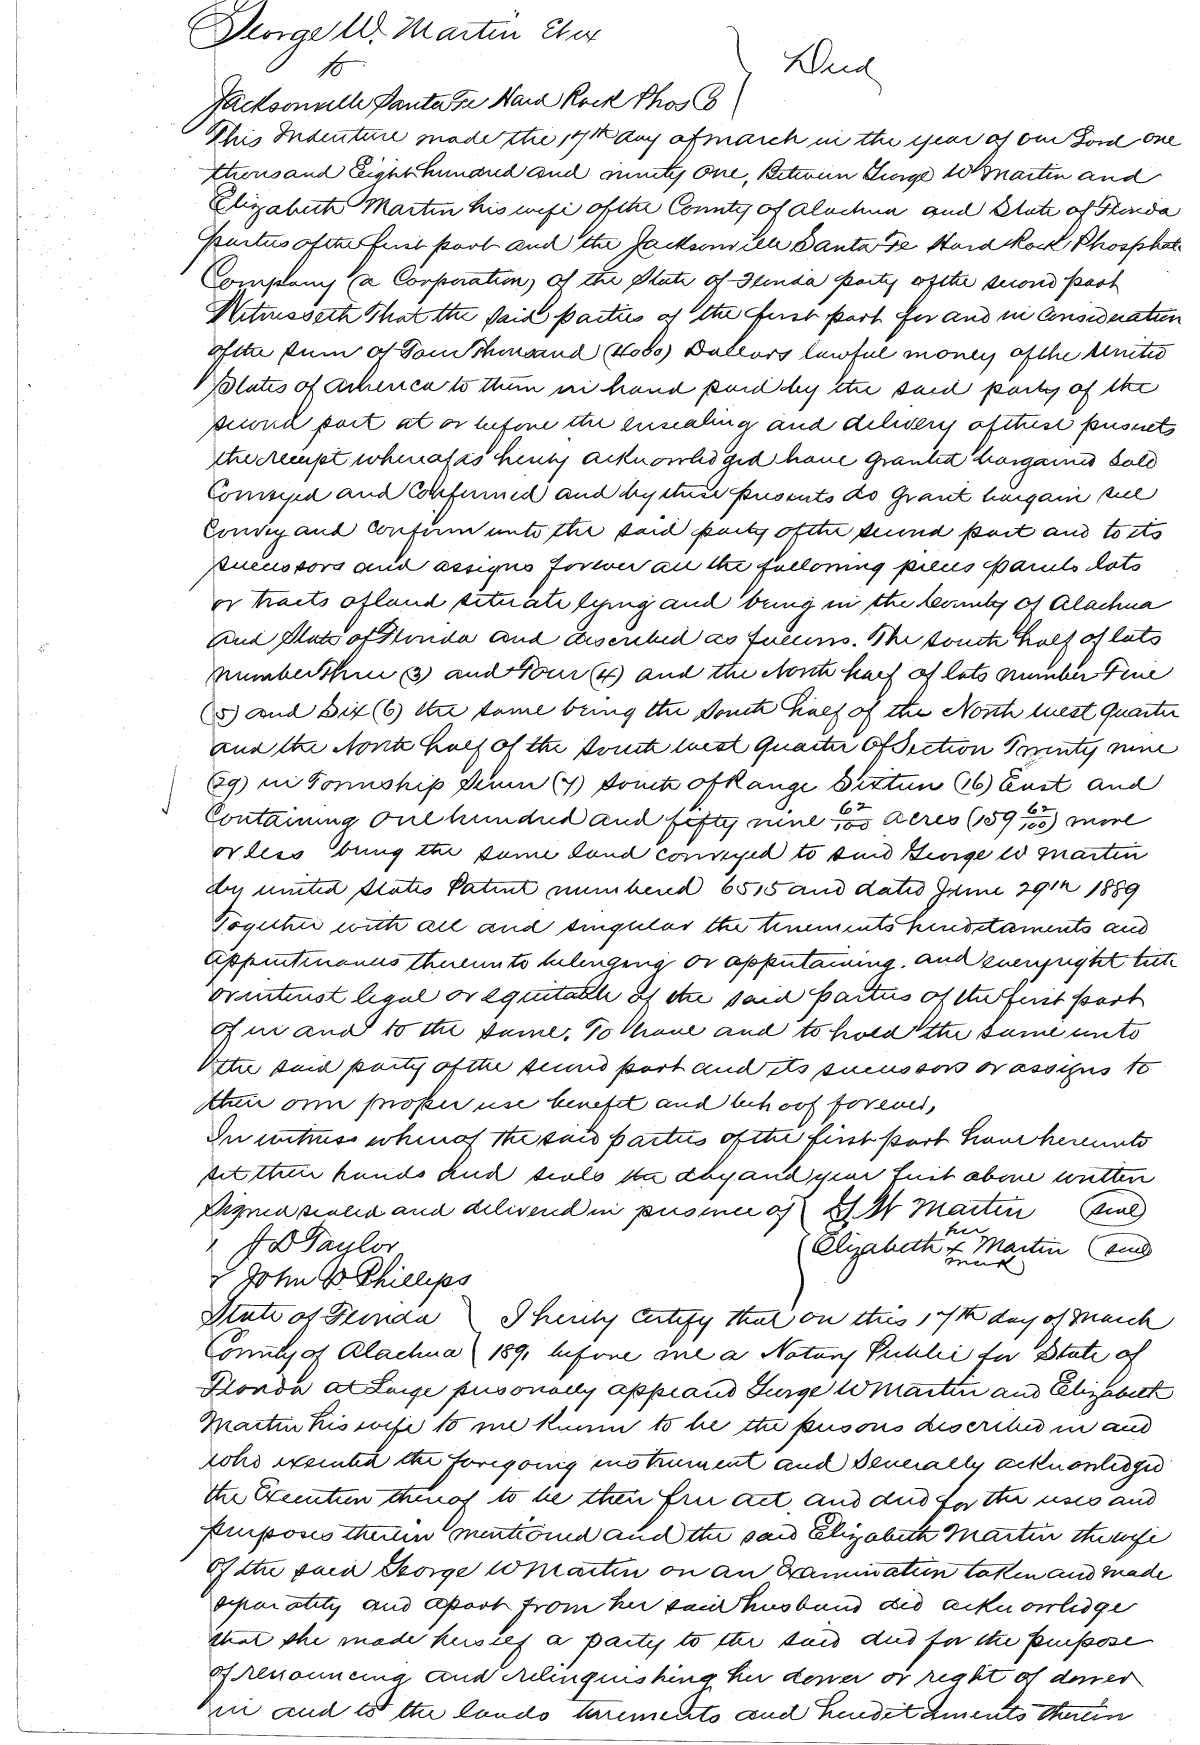 George W. Martin Et ux
to
Jacksonville Santa Fe Hard Rock Phos Co } Deed
This Indenture made the 17th day of march in the year of our Lord one
thousand Eight hundred and ninety one, Between George W Martin and
Elizabeth Martin his wife of the County of Alachua and State of Florida
parties of the first part and the Jacksonville Santa Fe Hard Rock Phosphate
Company (a Corporation) of the State of Florida party of the second part
Witnesseth That the said parties of the first part for and in consideration
of the sum of Four Thousand (4000) Dollars lawful money of the United
States of America to them in hand paid by the said party of the
second part at or before the ensealing and delivery of these presents
the receipt whereof is hereby acknowledged have granted bargained sold
Conveyed and Confirmed and by these presents do grant bargain sell
Convey and Confirm unto the said party of the second part and to its
successors and assigns forever all the following pieces parcels lots
or tracts of land situate lying and being in the County of Alachua
and State of Florida and described as follows. The south half of lots
number Three (3) and Four (4) and the North half of lots number Five
(5) and Six (6) the same being the South half of the North West Quarter
and the North half of the South west Quarter of Section Twenty nine
(29) in Township Seven (7) South of Range Sixteen (16) East and
Containing one hundred and fifty nine 62/100 acres (159 62/100) more
or less being the same land conveyed to said George W Martin
by united States Patent numbered 6515 and dated June 29th 1889
Together with all and singular the tenements hereditaments and
appurtenances thereunto belonging or appertaining. and every right title
or interest legal or equitable of the said parties of the first part
of in and to the same. To have and to hold the same unto
the said party of the second part and its successors or assigns to
their own proper use benefit and behoof forever,
In witness whereof the said parties of the first part have hereunto
set their hands and seals the day and year first above written
Signed sealed and delivered in presence of } G W Martin (seal)
J D Taylor } Elizabeth her x mark Martin (seal)
John B Phillips
State of Florida } I hereby certify that on this 17th day of March
County of Alachua } 1891 before me a Notary Public for State of
Florida at Large personally appeard George W Martin and Elizabeth
Martin his wife to me known to be the persons described in and
who executed the foregoing instrument and Severally acknowledged
the Execution thereof to be their free act and deed for the uses and
purposes therein mentioned and the said Elizabeth Martin the wife
of the said George W Martin on an Examination taken and made
separately and apart from her said husband did acknowledge
that she made herself a party to the said deed for the purpose
of renouncing and relinquishing her dower or right of dower
in and to the lands tenements and hereditaments therein